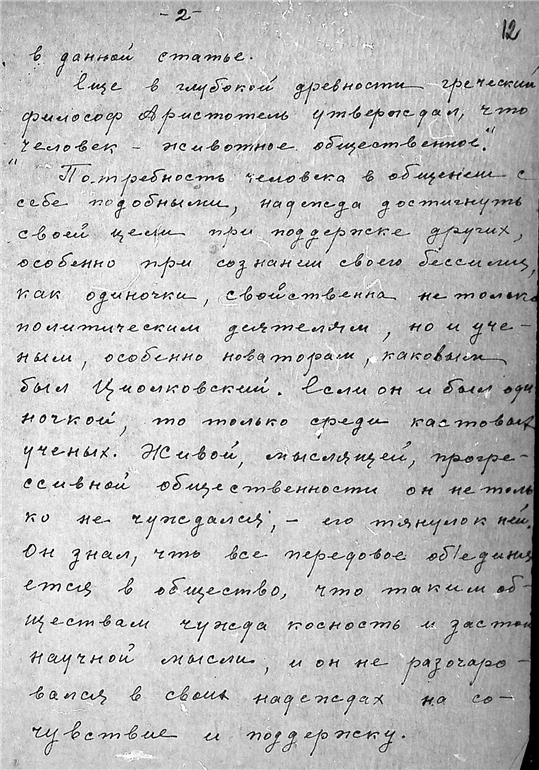 -2-
12
в данной статье.
Еще в глубокой древности греческий
философ Аристотель утверждал, что
"человек - животное общественное".
Потребность человека в общении с
себе подобными, надежда достигнуть
своей цели при поддержке других,
особенно при сознании своего бессилия,
как одиночки, свойственна не только
политическим деятелям, но и уче-
ным, особенно новаторам, каковым
был Циолковский. Если он и был оди
ночкой, то только среди кастовых
ученых. Живой, мыслящей, прогре-
ссивной общественности он не толь
ко не чуждался, - его тянуло к ней.
Он знал, что все передовое об'единя
ется в общество, что таким об-
ществам чужда косность и застой
научной мысли, и он не разочаро-
вался в своих надеждах на со-
чувствие и поддержку.